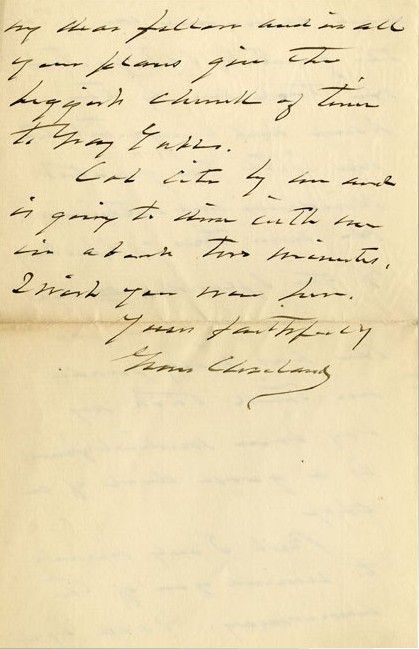 my dear fellow and in all
your plans give the
biggest chunk of time
to Gray Gables.
Col sits by me and
is going to dine with me
in about two minutes.
I wish you were here.
Yours faithfully
Grover Cleveland